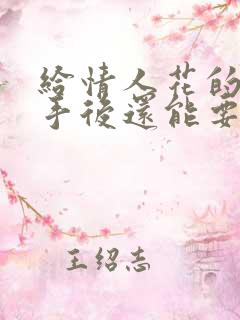 給情人花的
手後還能要
王绍志